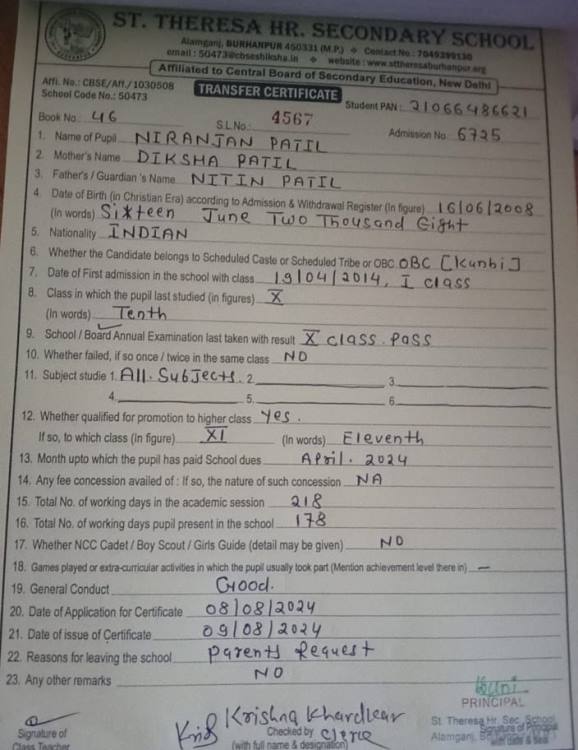 ST. THERESA HR. SECONDARY SCHOOL
Alamganj, BURHANPUR 450331 (M.P.) ❖ Contact No.: 7049299130
email : 50473@cbseshiksha.in ❖ website : www.sttheresaburhanpur.org
Affiliated to Central Board of Secondary Education, New Delhi
Affi. No.: CBSE/Aff./1030508
School Code No.: 50473
TRANSFER CERTIFICATE
Student PAN : 21066486621
Book No.: 46 S.L.No.: 4567 Admission No. 6725
1. Name of Pupil NIRANJAN PATIL
2. Mother's Name DIKSHA PATIL
3. Father's / Guardian 's Name NITIN PATIL
4. Date of Birth (in Christian Era) according to Admission & Withdrawal Register (In figure) 16/06/2008
(In words) Sixteen June Two Thousand Eight
5. Nationality INDIAN
6. Whether the Candidate belongs to Scheduled Caste or Scheduled Tribe or OBC OBC [Kunbi]
7. Date of First admission in the school with class 19/04/2014, I class
8. Class in which the pupil last studied (in figures) X
(In words) Tenth
9. School / Board Annual Examination last taken with result X class. Pass
10. Whether failed, if so once / twice in the same class NO
11. Subject studie 1. All. Subjects. 2. 3.
4. 5. 6.
12. Whether qualified for promotion to higher class Yes.
If so, to which class (In figure) XI (In words) Eleventh
13. Month upto which the pupil has paid School dues April. 2024
14. Any fee concession availed of : If so, the nature of such concession NA
15. Total No. of working days in the academic session 218
16. Total No. of working days pupil present in the school 178
17. Whether NCC Cadet / Boy Scout / Girls Guide (detail may be given) NO
18. Games played or extra-curricular activities in which the pupil usually took part (Mention achievement level there in) —
19. General Conduct Good.
20. Date of Application for Certificate 08/08/2024
21. Date of issue of Certificate 09/08/2024
22. Reasons for leaving the school Parents Request
23. Any other remarks NO
PRINCIPAL
Krishna Khardkar
St. Theresa Hr. Sec. School
Signature of Checked by Clerk Alamganj, Signature of Principal
Class Teacher (with full name & designation) with date & Seal